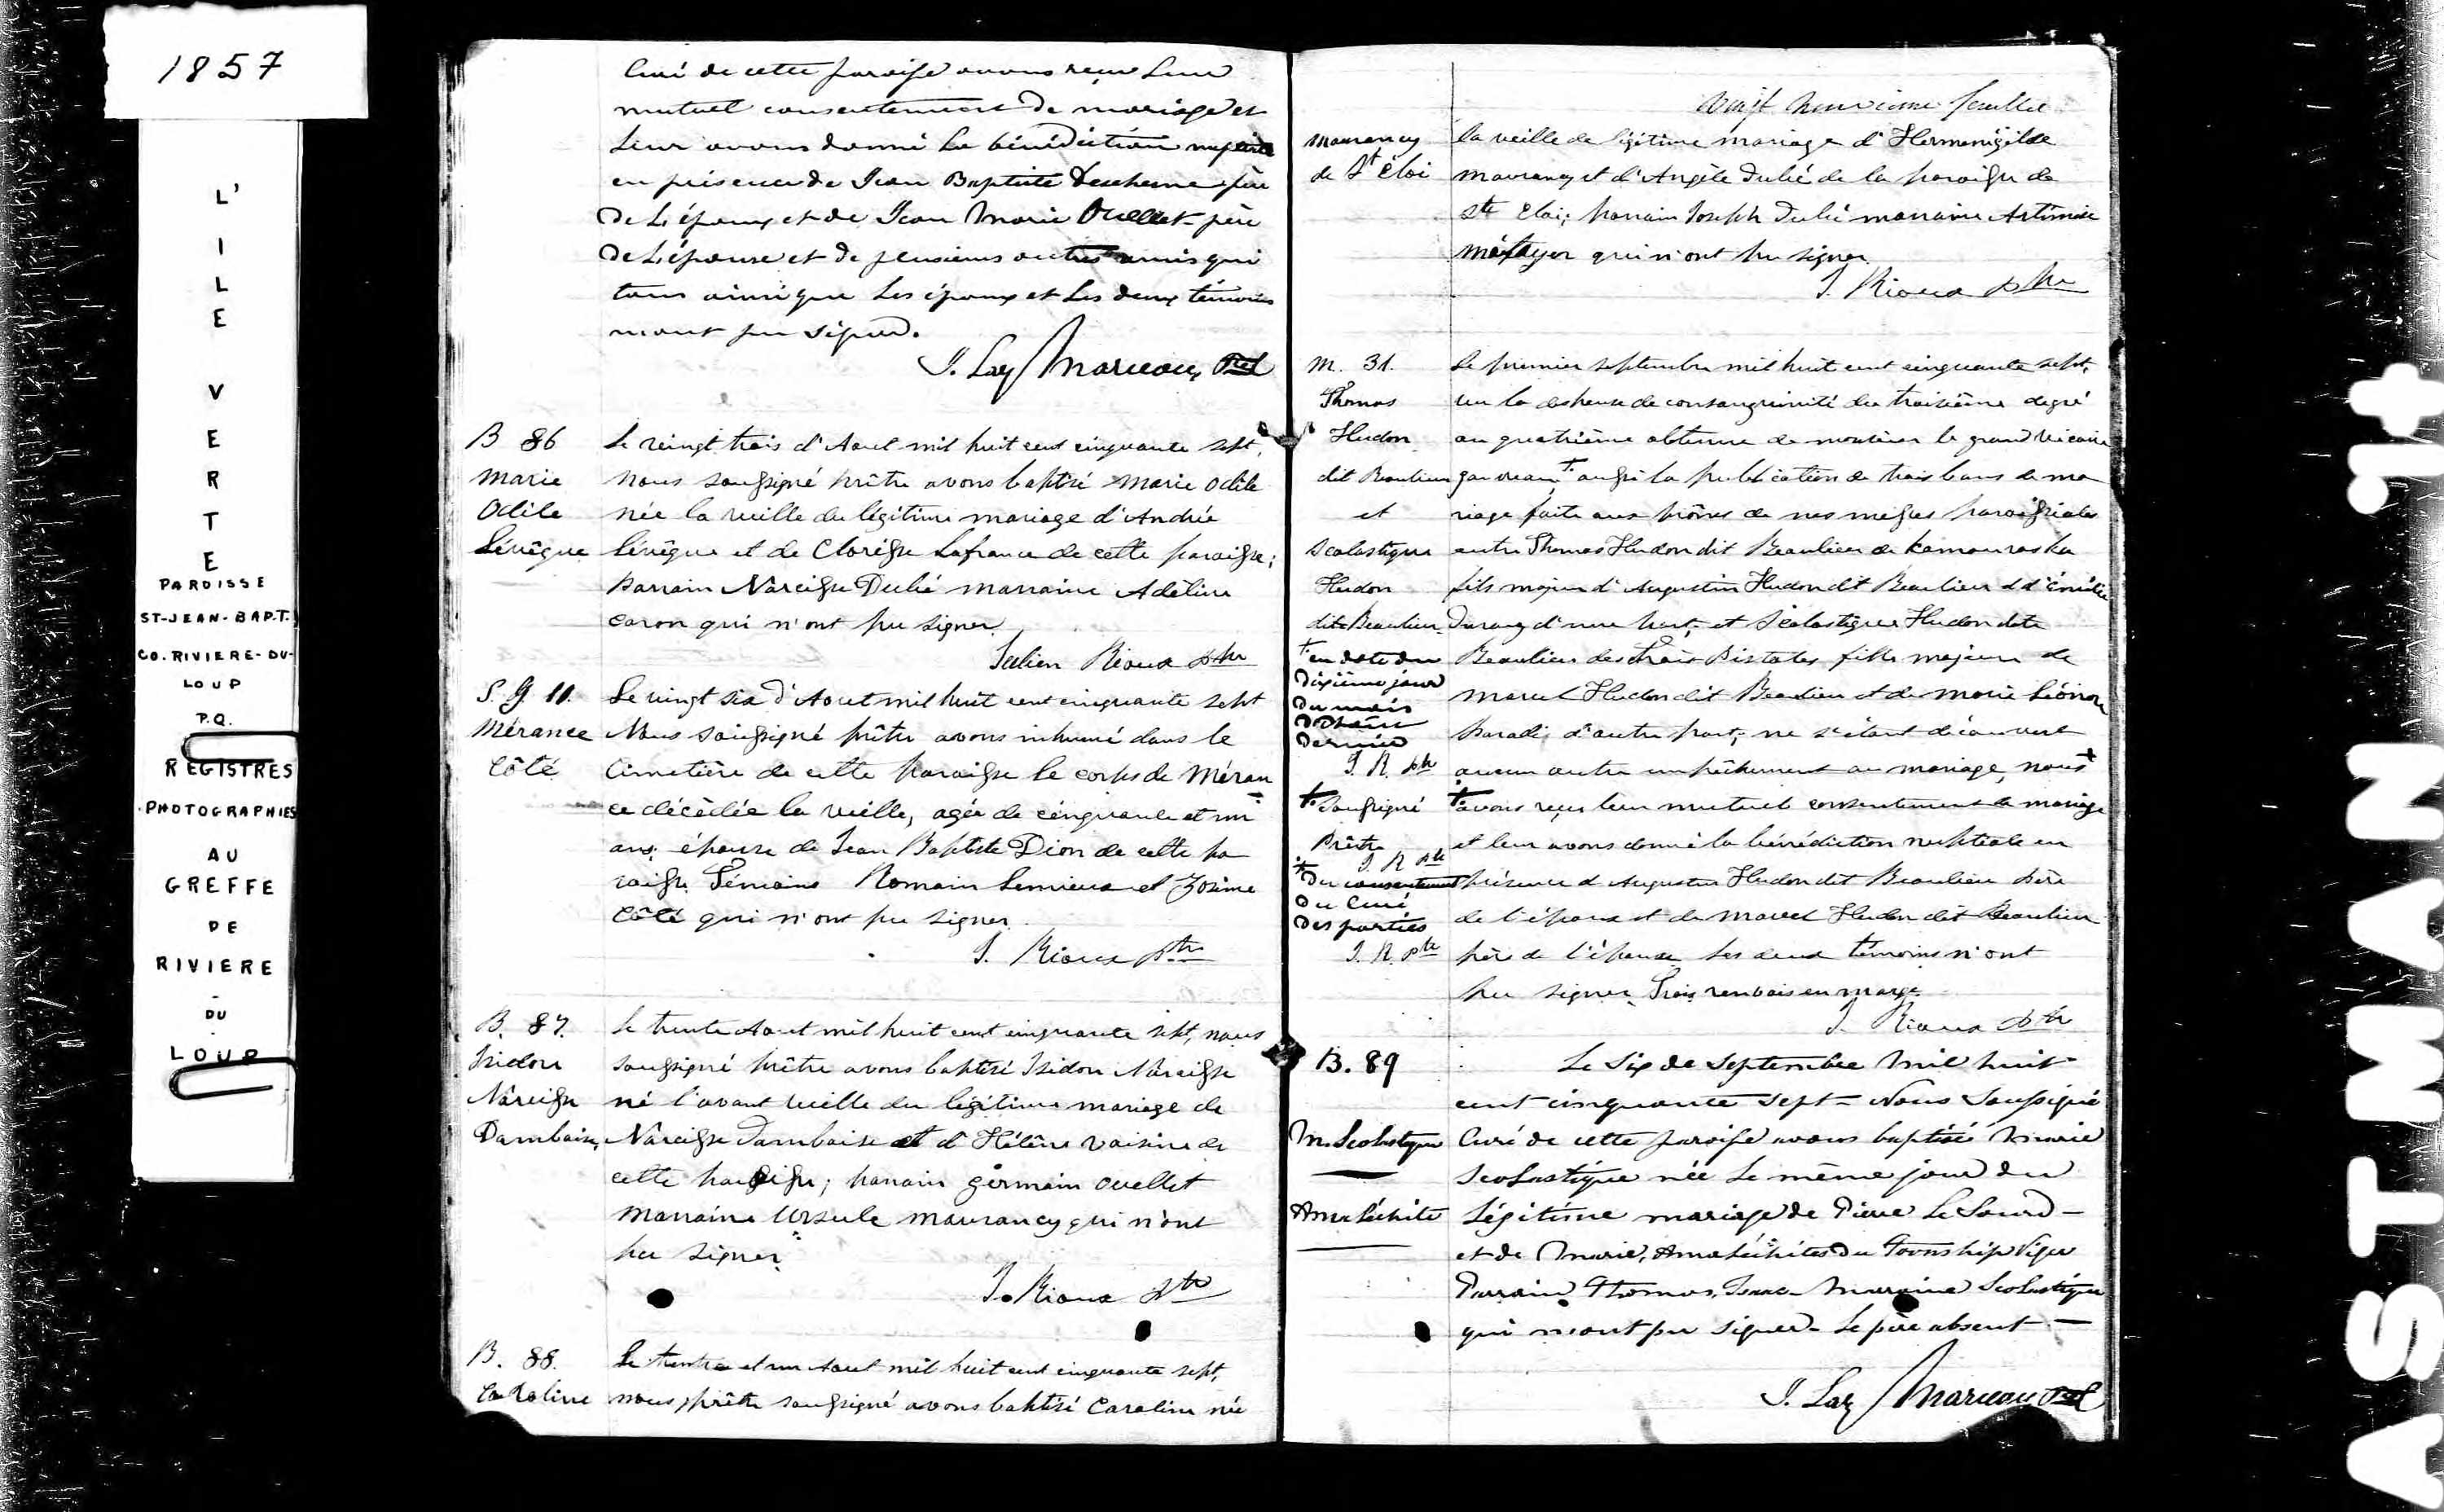 1857
L'
I
L
E
V
E
R
T
E
PAROISSE
ST-JEAN-BAPT.
CO. RIVIERE-DU-
LOUP
P.Q.
REGISTRES
PHOTOGRAPHIES
AU
GREFFE
DE
RIVIERE
-
DU
-
LOUP
Curé de cette paroisse avons reçu leur
mutuel consentement de mariage et
leur avons donné la bénédiction nuptiale
en présence de Jean Baptiste Deschene père
de L'époux et de Jean Marie Ouellet père
de L'épouse et de plusieurs autres amis qui
tous ainsi que les époux et les deux témoins
n'ont pu signer.
J. Laz Marceau Ptre
B 86
Marie
Odile
Lévêque
Le vingt trois d'Aout mil huit cent cinquante sept,
nous soussigné prêtre avons baptisé Marie Odile
née la veille du légitime mariage d'Andrée
Lévêque et de Clorisse Lafrance de cette paroisse;
parrain Narcisse Dubé marraine Adéline
Caron qui n'ont pu signer.
Julien Rioux ptre
S. G. 11.
Mérance
Côté
Le vingt six d'Aout mil huit cent cinquante sept
Nous soussigné prêtre avons inhumé dans le
Cimetière de cette paroisse le corps de Méran
ce décédée la veille, agée de cinquante et un
ans; épouse de Jean Baptiste Dion de cette pa
roisse. Témoins Romain Lemieux et Zozime
Côté qui n'ont pu signer.
J. Rioux ptre
B. 87.
Isidore
Narcisse
Damboise
Le trente Aout mil huit cent cinquante sept, nous
soussigné prêtre avons baptisé Isidore Narcisse
né l'avant veille du légitime mariage de
Narcisse Damboise et d'Hélène Voisine de
cette paroisse; parrain Germain Ouellet
marraine Ursule Maurancy qui n'ont
pu signer
J. Rioux ptre
B. 88.
Caroline
Le trente et un Aout mil huit cent cinquante sept,
nous, prêtre soussigné avons baptisé Caroline née
Vingt neuvième feuillet
Maurancy
de St Eloi
la veille de légitime mariage d'Hermenigilde
Maurancy et d'Angèle Dubé de la paroisse de
St Eloi; parrain Joseph Dubé marraine Artémise
Métayer qui n'ont pu signer
J. Rioux ptre
M. 31.
Thomas
Hudon
dit Beaulieu
et
Scolastique
Hudon
dite Beaulieu
+ en date du
dixième jour
du mois
d'
dernier
J. R. ptre
+ soussigné
Prêtre
J R ptre
+ Du consentement
du Curé
des parties
J. R. ptre
Le premier septembre mil huit cent cinquante sept,
vu la dispense de consanguinité du troisième degré
au quatrième obtenue de monsieur le grand Vicaire
Gauvreau + aussi la publication de trois bans de ma
riage faite aux prônes de nos messes paroissiales
entre Thomas Hudon dit Beaulieu de Kamouraska
fils majeur d'Augustin Hudon dit Beaulieu et d'Emélie
d'une part; et Scolastique Hudon dite
Beaulieu des Trois Pistoles fille majeure de
Marcel Hudon dit Beaulieu et de Marie Léonore
Paradis d'autre part; ne s'étant découvert
aucun autre empêchement au mariage, nous +
+ avons reçu leur mutuel consentement de mariage
et leur avons donné la bénédiction nuptiale en
présence d'Augustin Hudon dit Beaulieu père
de l'époux et de Marcel Hudon dit Beaulieu
père de l'épouse les deux témoins n'ont
pu signer. Trois renvois en marge.
J. Rioux ptre
B. 89
M. Scolastique
Amaléchite
Le Six de Septembre Mil huit
cent cinquante Sept - Nous Soussigné
Curé de cette paroisse avons baptisé Marie
Scolastique née le même jour du
légitime mariage de Pierre Le Sourd -
et de Marie, Amaléchites du Township Viger
Parrain Thomas, Isaac - Marraine Scolastique
qui n'ont pu signer - Le père absent -
J. Laz Marceau Ptre
ASTMAN